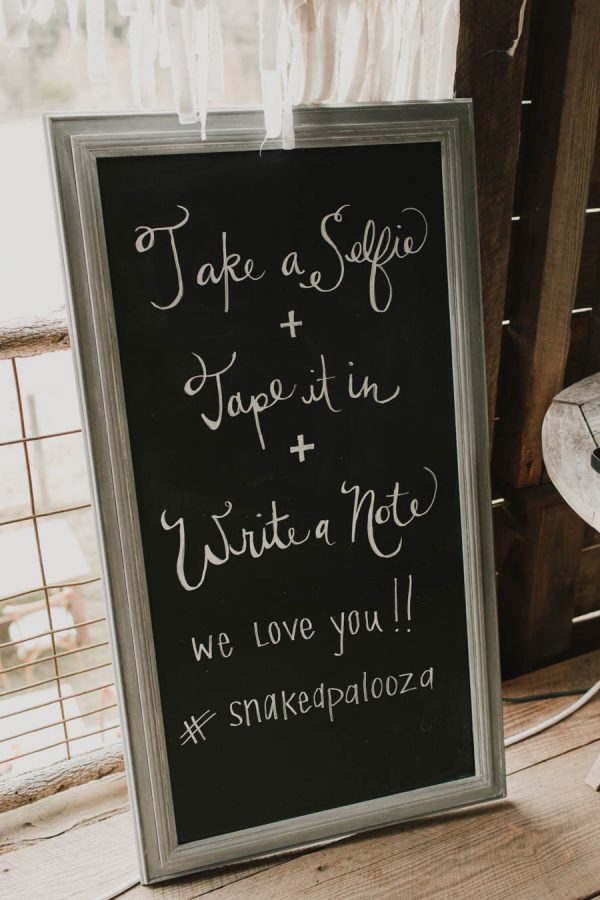 Take a Selfie
+
Tape it in
+
Write a Note
we love you!!
# snakedpalooza